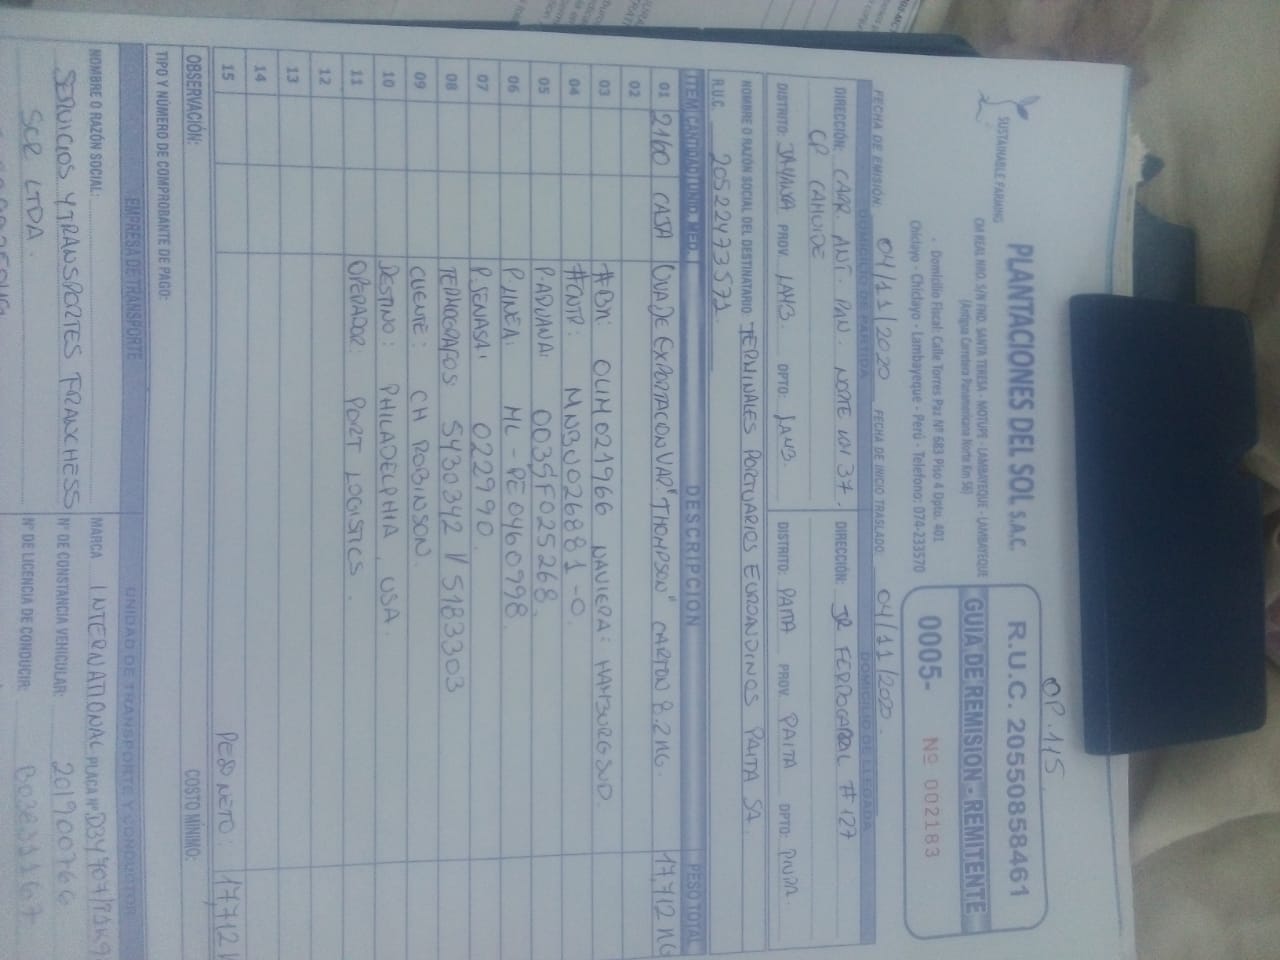 OP. 115
SUSTAINABLE FARMING
PLANTACIONES DEL SOL S.A.C
CM REAL NRO. S/N FND. SANTA TERESA - MOTUPE - LAMBAYEQUE - LAMBAYEQUE
(Antigua Carretera Panamericana Norte Km 56)
Domicilio Fiscal: Calle Torres Paz Nº 683 Piso 4 Dpto. 401
Chiclayo - Chiclayo - Lambayeque - Perú - Telefono: 074-233570
R.U.C. 20550858461
GUIA DE REMISION - REMITENTE
0005- Nº 002183
FECHA DE EMISIÓN: 04/11/2020 FECHA DE INICIO TRASLADO: 04/11/2020
DOMICILIO DE PARTIDA
DIRECCIÓN: CARR. ANT. PAN. NORTE KM 37,
CP CAHUIDE
DISTRITO: JAYANCA PROV. LAMB. DPTO: LAMB.
DOMICILIO DE LLEGADA
DIRECCIÓN: JR FERROCARRIL #127
DISTRITO: PAITA PROV. PAITA DPTO: PIURA.
NOMBRE O RAZÓN SOCIAL DEL DESTINATARIO: TERMINALES PORTUARIOS EUROANDINOS PAITA SA.
R.U.C. 20522473571
ITEM CANTIDAD UNID. MED. DESCRIPCION PESO TOTAL
01 2160 CAJA UVA DE EXPORTACON VAR "THOMPSON" CARTON 8.2 KG. 17,712 KG
02
03 #BK: 0LIM021966 NAVIERA: HAMBURG SUD.
04 #CNTR: MNBU002688 1-0
05 P.ADUANA: 0035F025268
06 P.LINEA: ML-PE0460998
07 P.SENASA: 022990.
08 TERMOGRAFOS 5430342 V 5183303
09 CLIENTE: CH ROBINSON.
10 DESTINO: PHILADELPHIA, USA.
11 OPERADOR: PORT LOGISTICS.
12
13
14
15 PESO NETO: 17,712
OBSERVACIÓN: COSTO MÍNIMO:
TIPO Y NÚMERO DE COMPROBANTE DE PAGO:
EMPRESA DE TRANSPORTE
NOMBRE O RAZÓN SOCIAL:
SERVICIOS Y TRANSPORTES FRANCHESS
SCR LTDA.
UNIDAD DE TRANSPORTE Y CONDUCTOR
MARCA INTERNATIONAL PLACA Nº
Nº DE CONSTANCIA VEHICULAR: 201900766
Nº DE LICENCIA DE CONDUCIR: